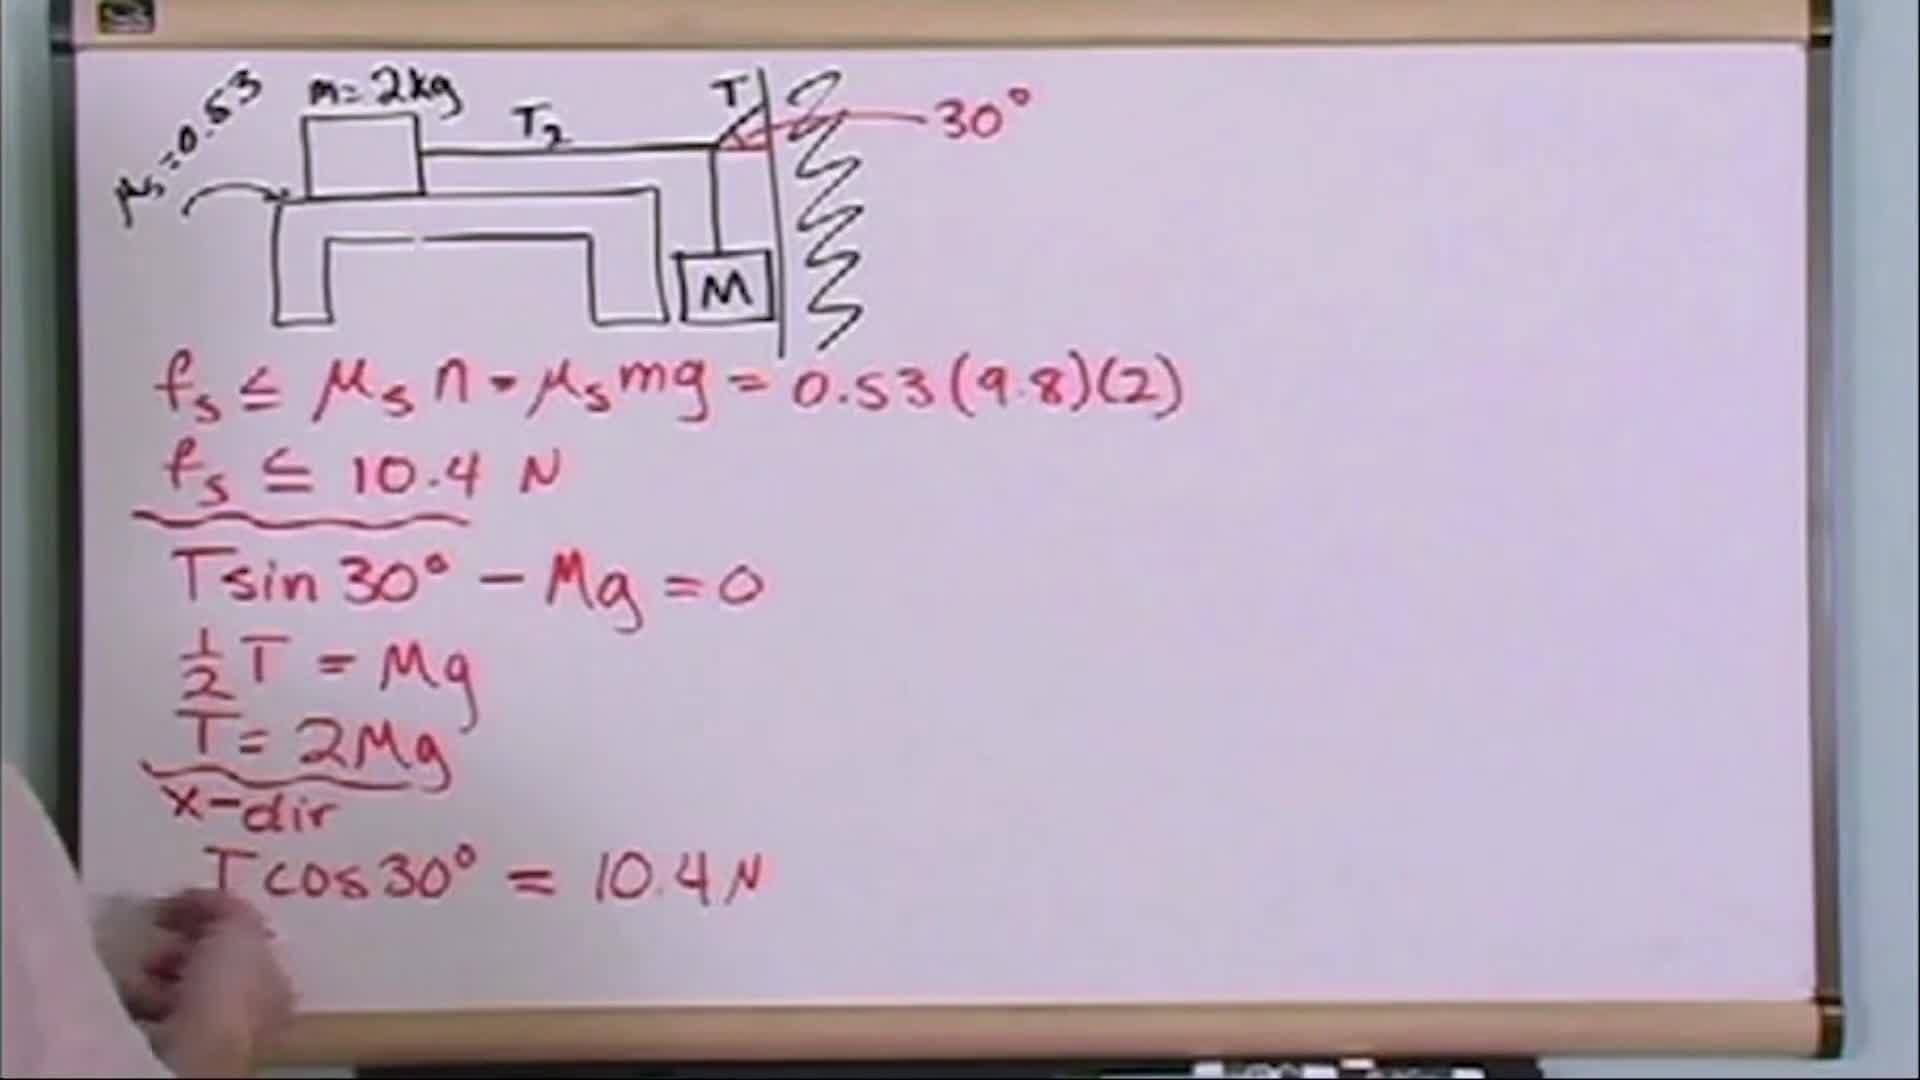 m = 2kg
μs = 0.53
T₂
T
30°
M
fs ≤ μs n = μs mg = 0.53(9.8)(2)
fs ≤ 10.4 N
T sin 30° − Mg = 0
½ T = Mg
T = 2Mg
x-dir
T cos 30° = 10.4 N